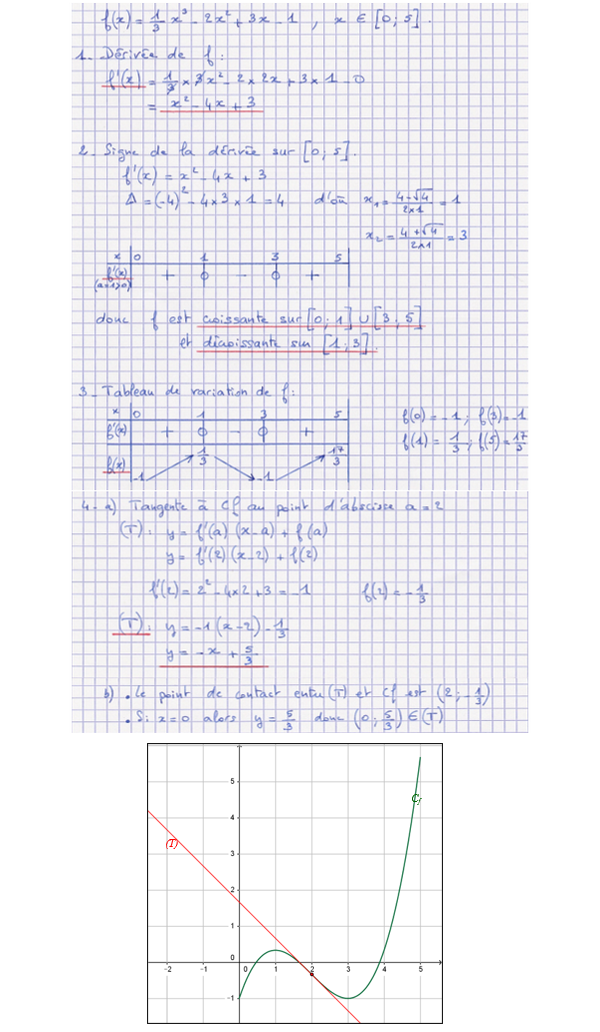 f(x) = 1/3 x³ - 2x² + 3x - 1 , x ∈ [0 ; 5] .
1 - Dérivée de f :
f'(x) = 1/3 × 3x² - 2 × 2x + 3 × 1 - 0
= x² - 4x + 3
2 - Signe de la dérivée sur [0 ; 5] .
f'(x) = x² - 4x + 3
Δ = (-4)² - 4×3×1 = 4 d'où x₁ = (4-√4)/(2×1) = 1
x₂ = (4+√4)/(2×1) = 3
x 0 1 3 5
f'(x) + 0 - 0 +
(a=1>0)
donc f est croissante sur [0 ; 1] ∪ [3 ; 5]
et décroissante sur [1 ; 3] .
3 - Tableau de variation de f :
x 0 1 3 5
f'(x) + 0 - 0 +
f(x) -1 1/3 -1 17/3
f(0) = -1 ; f(3) = -1
f(1) = 1/3 ; f(5) = 17/3
4 - a) Tangente à Cf au point d'abscisse a = 2
(T) : y = f'(a) (x-a) + f(a)
y = f'(2) (x-2) + f(2)
f'(2) = 2² - 4×2 + 3 = -1 f(2) = -1/3
(T) : y = -1 (x-2) - 1/3
y = -x + 5/3
b) • Le point de contact entre (T) et Cf est (2 ; -1/3)
• Si x = 0 alors y = 5/3 donc (0 ; 5/3) ∈ (T)
5
Cf
4
(T)
3
2
1
0
-2 -1 0 1 2 3 4 5
-1